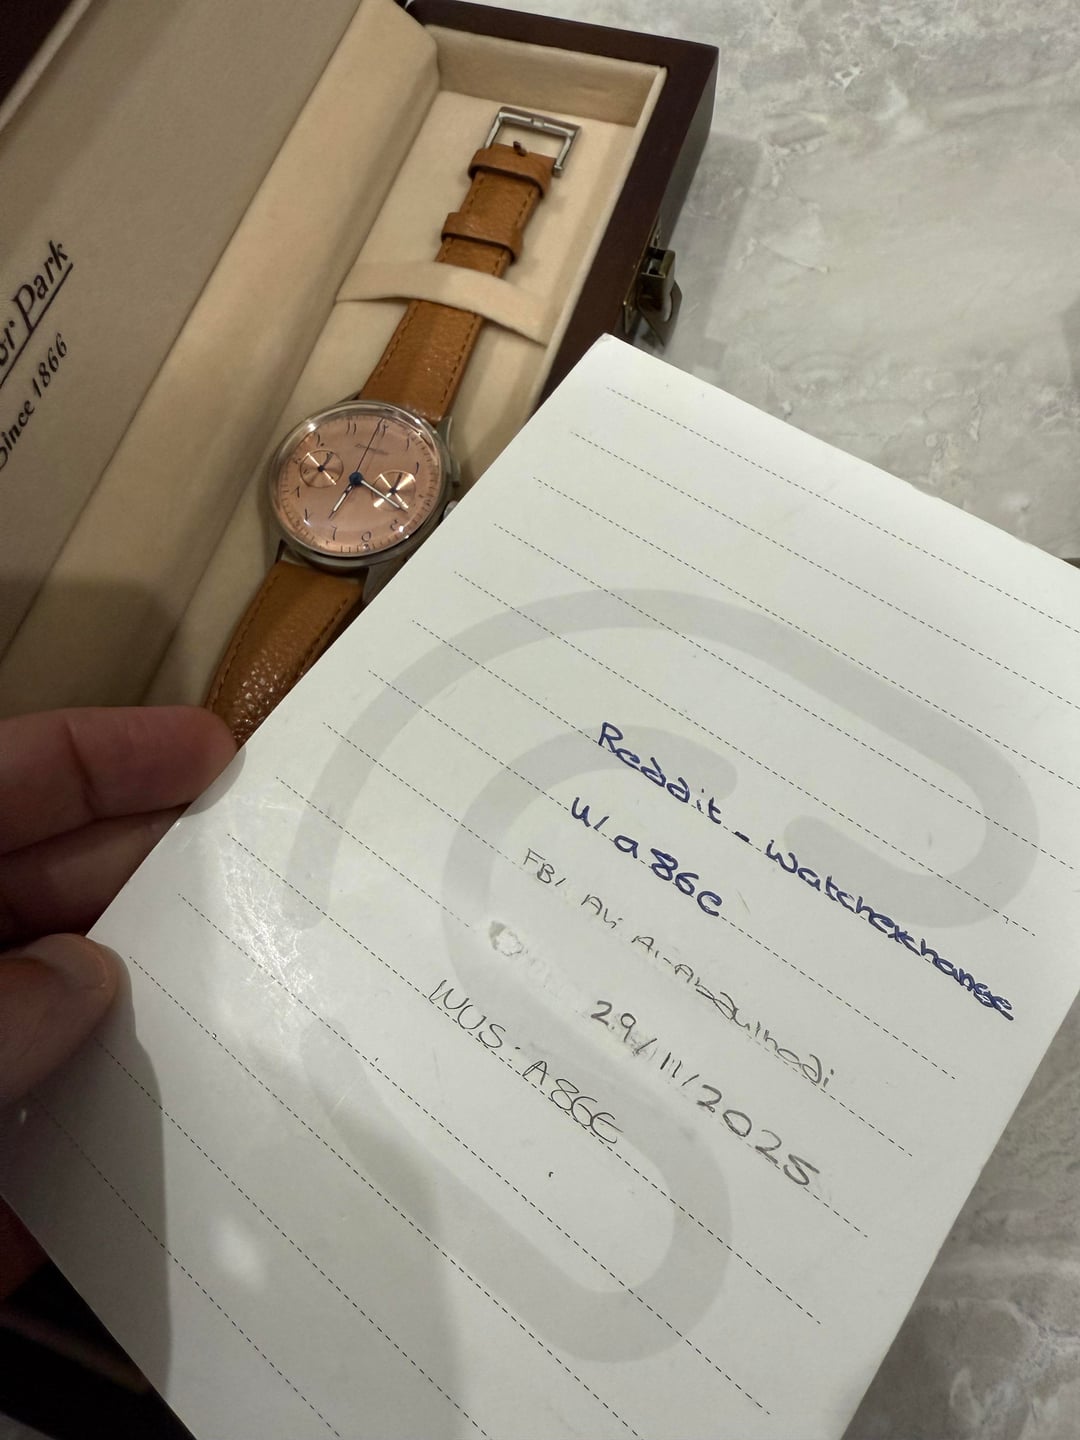 or Park
Since 1866
Reddit - Watchexchange
u/a86c
FB/ Ali
29/11/2025
WUS: A86E